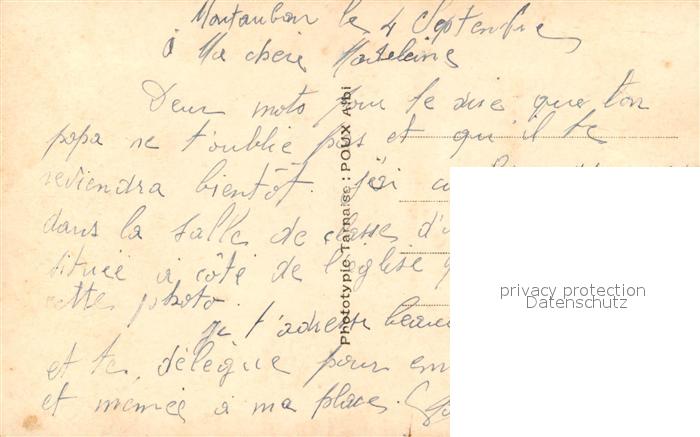 Montauban le 4 Septembre
à Ma chère Madeleine
Deux mots pour te dire que ton
papa ne t'oublie pas et qu'il te
reviendra bientôt.
dans la salle de classes d'u
située à côté de l'église q
cette photo.
je t'adresse beauc
et te délègue pour em
et mémée à ma place.
Phototypie Tarnaise : POUX Albi
privacy protection
Datenschutz